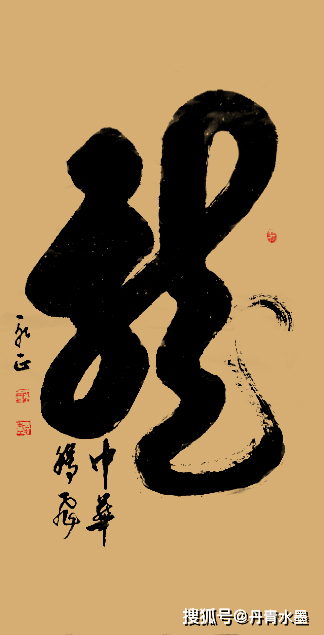 龍
中華
腾飛
搜狐号@丹青水墨